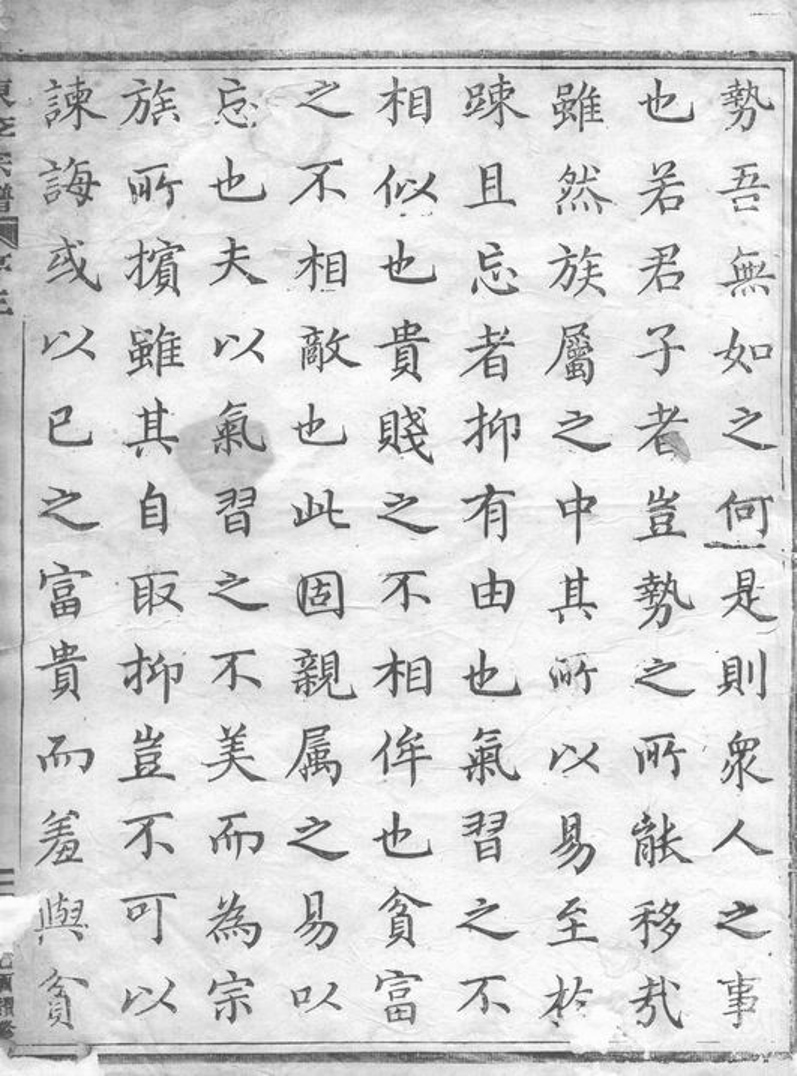 勢吾無如之何是則衆人之事
也若君子者豈勢之所能移哉
雖然族屬之中其所以易至於
踈且忘者抑有由也氣習之不
相似也貴賤之不相侔也貧富
之不相敵也此固親属之易以
忘也夫以氣習之不美而為宗
族所擯雖其自取抑豈不可以
諫誨或以已之富貴而羞與貧
宗譜